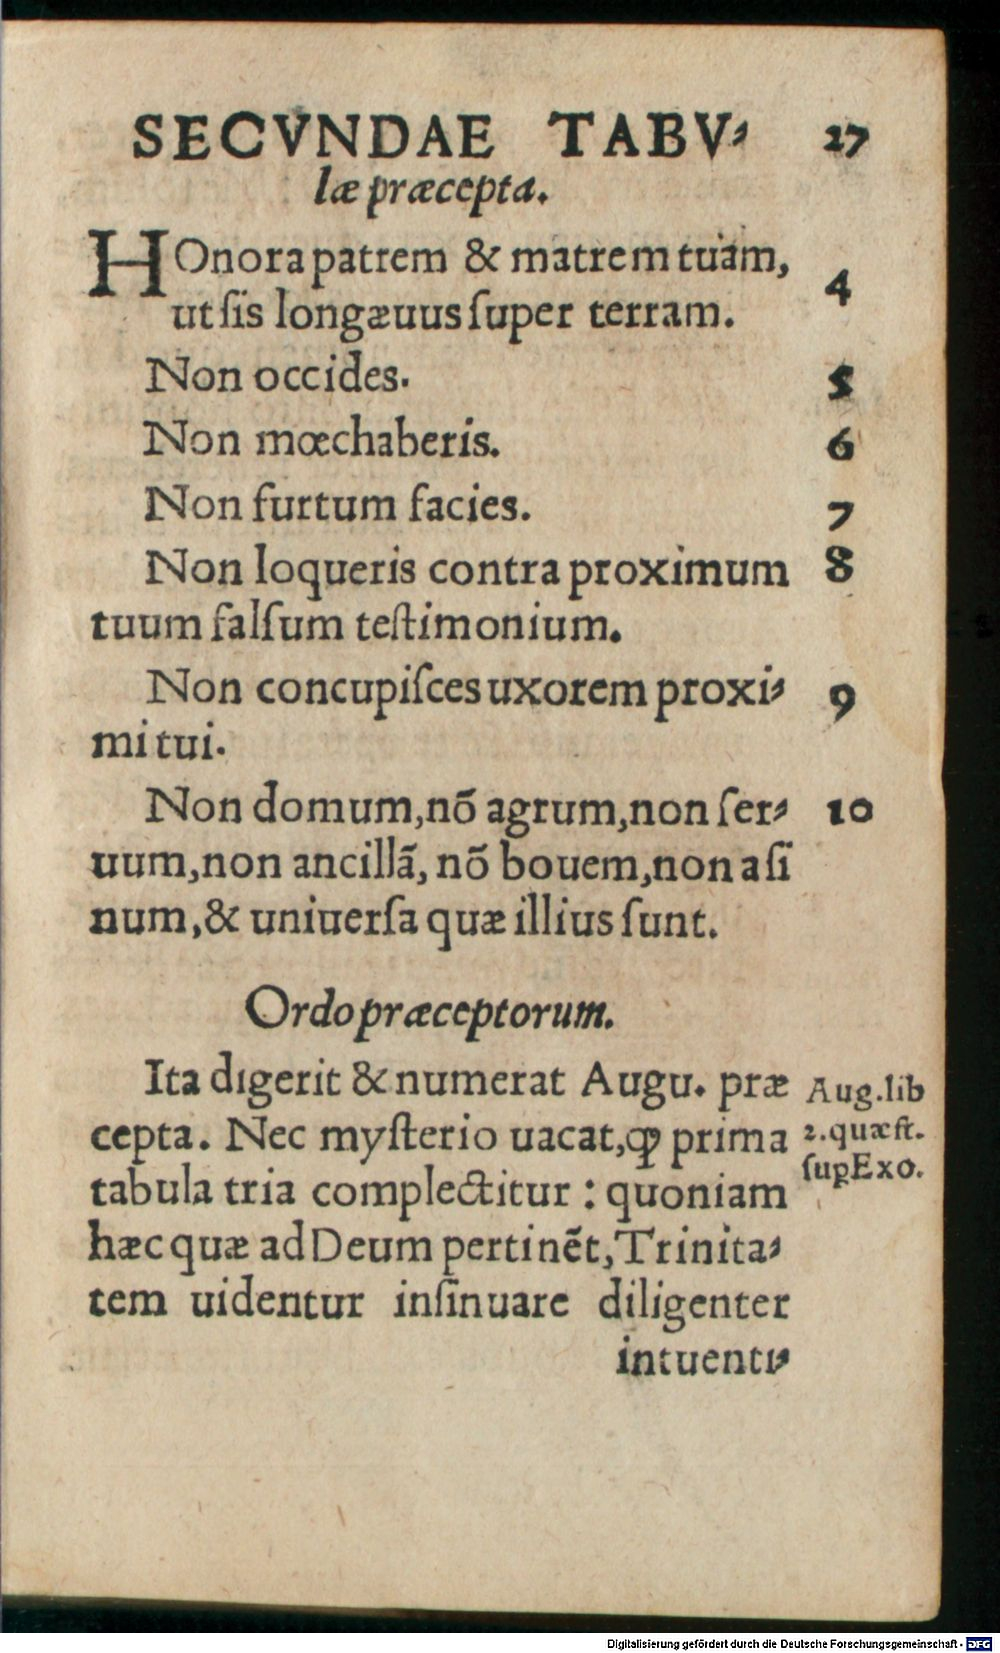 SECVNDAE TABV- 27
læ præcepta.
HOnora patrem & matrem tuam,
ut sis longæuus super terram. 4
Non occides. 5
Non mœchaberis. 6
Non furtum facies. 7
Non loqueris contra proximum 8
tuum falsum testimonium.
Non concupisces uxorem proxi- 9
mi tui.
Non domum, nō agrum, non ser- 10
uum, non ancillā, nō bouem, non asi
num, & uniuersa quæ illius sunt.
Ordo præceptorum.
Ita digerit & numerat Augu. præ
cepta. Nec mysterio uacat, ꝙ prima
tabula tria complectitur : quoniam
hæc quæ ad Deum pertinēt, Trinita-
tem uidentur insinuare diligenter
intuenti-
Aug. lib
2. quæst.
suꝑ Exo.
Digitalisierung gefördert durch die Deutsche Forschungsgemeinschaft - DFG